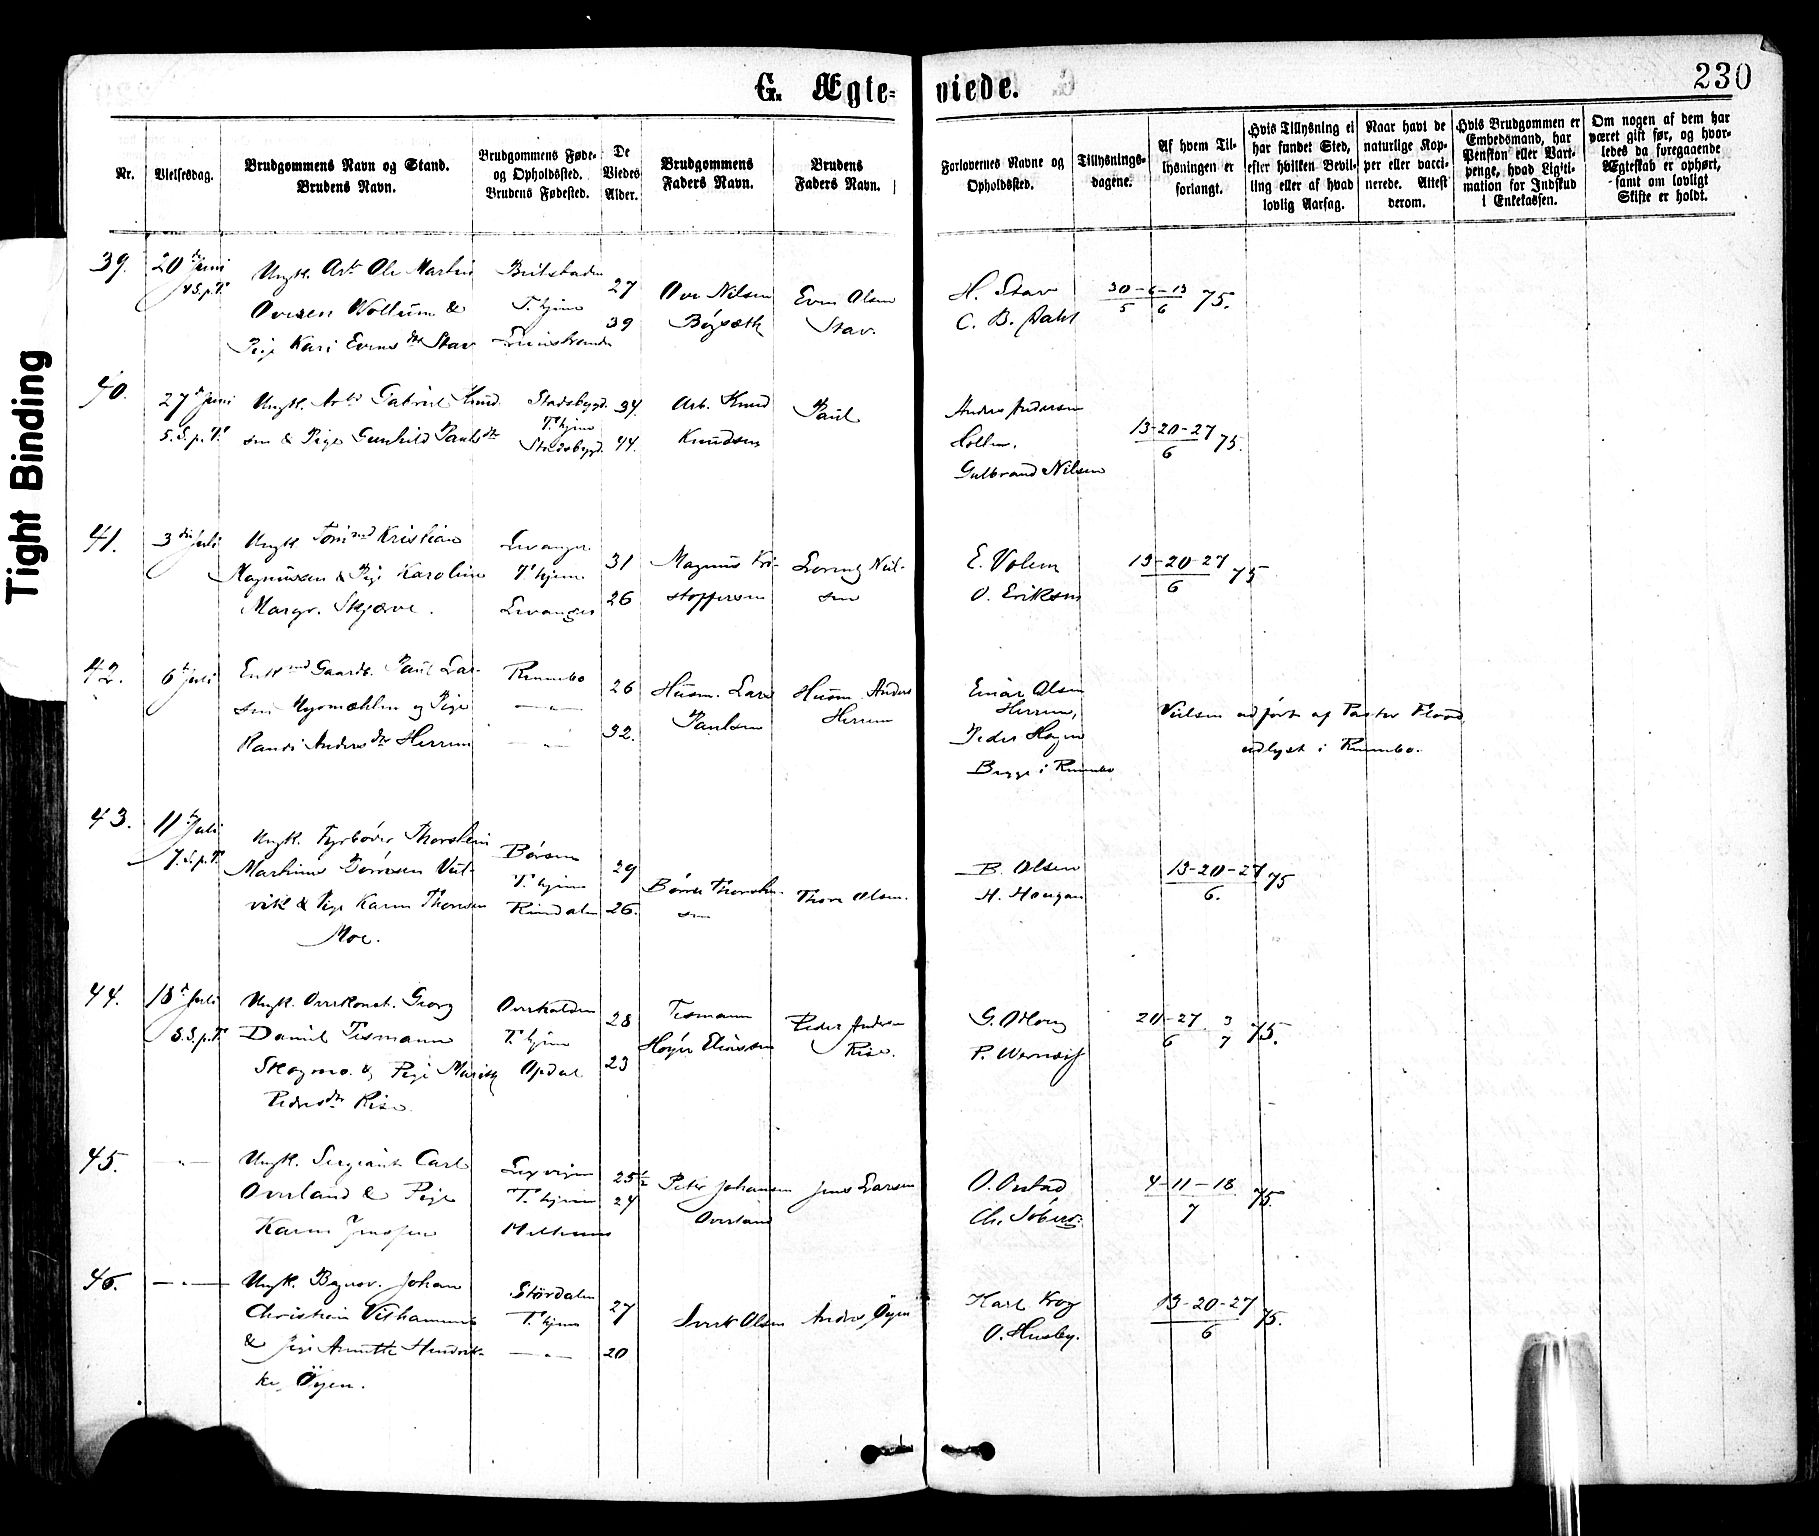 Tight Binding
G. Ægte-
viede.
230
Nr.
Vielsesdag.
Brudgommens Navn og Stand.
Brudens Navn.
Brudgommens Føde-
og Opholdssted.
Brudens Fødested.
De
Viedes
Alder.
Brudgommens
Faders Navn.
Brudens
Faders Navn.
Forlovernes Navne og
Opholdssted.
Tillysnings-
dagene.
Af hvem Til-
lysningen er
forlangt.
Hvis Tillysning ei
har fundet Sted,
efter hvilken Bevil-
ling eller af hvad
lovlig Aarsag.
Naar havt de
naturlige Kop-
per eller vacci-
nerede. Attest
derom.
Hvis Brudgommen er
Embedsmand, har
Pension eller Vart-
penge, hvad Legiti-
mation for Indskud
i Enkekassen.
Om nogen af dem har
været gift før, og hvor-
ledes da foregaaende
Ægteskab er ophørt,
samt om lovligt
Skifte er holdt.
39.
20 de Juni
4 S. p. T.
Ungk. Arb. Ole Martin
Ovesen Wollum &
Pige Kari Evensdtr Stav
T.hjem
27
39
Ove Nilsen
Bøgsæth
Even Olsen
Stav.
H. Stav
C. B. Dahl
30-6-13 75.
5 6
40.
27 d Juni
5. S. p. T.
Ungk. Arb. Gabriel Knud-
sen & Pige Gunhild Paulsdtr
Stadsbygd.
T.hjem
Stadsbygd.
34.
44.
Arb. Knud
Knudsen
Paul
Anders Andersen
Gulbrand Nilsen
13-20-27 75.
6
41.
3 die Juli
Ungk. Tømmd Kristian
Magnussen & Pige Karoline
Margr. Skjærve.
Levanger
T.hjem
Levanger
31
26
Magnus Kri-
stoffersen
Lorentz Niel-
sen
E. Volen
O. Eriksen
13-20-27 75
6
42.
6 t Juli
Enkmd Gaardb. Paul Lar-
sen Nyomæhlen og Pige
Randi Andersdtr Herrem
Rennebo
— " —
— " —
26
32.
Husm. Lars
Paulsen
Husm. Anders
Herrem
Einar Olsen
Herrem,
Peder Hagen
Begge i Rennebo
Vielsen udført af Pastor Flood,
udlyst i Rennebo.
43.
11 te Juli
7. S. p. T.
Ungk. Fyrbøder Thorstein
Martinus Børresen Viit-
vik & Pige Karen Thoresen
Moe.
Børsen
T.hjem
Rindalen
29
26.
Børre Thorstein-
sen
Thore Olsen.
B. Olsen
H. Haugan
13-20-27 75
6.
44.
18 d Juli
8. S. p. T.
Ungk. Overkonst. Georg
Daniel Tismann
Skogmo. & Pige Marith
Pedersdtr Rise.
Overhalden
T.hjem
Opdal
28
23
Tismann
Høyer Eliassen
Peder Andersen
Rise.
20-27 3 75.
6 7
45.
— " —
Ungk. Sergeant Carl
Overland & Pige
Karen Jenssen
Lexvigen
T.hjem
Melhuus
25½
24
Peter Johansen
Overland
Jens Larsen
4-11-18 75.
7
46.
— " —
Ungk. Bognsv. Johan
Christian Vilhammer
& Pige Annette Hendrik-
ke Öyen.
Stördalen
T.hjem
— " —
27
20
Sivert Olsen
Anders Öyen
Karl Krog
O. Husby.
13-20-27 75.
6